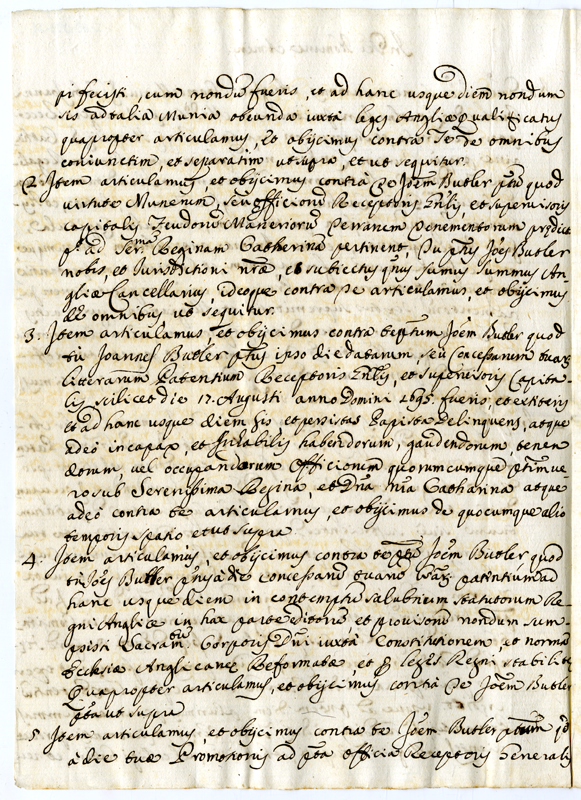 pi fecisti, cum nondũ fueris, et ad hanc usque diem nondum
sis ad talia Munia obeunda iuxta leges Angliæ qualificatus
quapropter articulamus, et obijcimus contra Te de omnibus
coniunctim, et separatim ut supra, et ut sequitur.
2. Item articulamus, et obijcimus contrà Te Joẽm Butler ptũ quod
virtute Munerum, seu officiorũ Receptoris Gñlis, et supervisoris
capitalis Feudorũ Maneriorũ Terrarum Tenementorum predict
ad Serma Reginam Catherina pertinent, Tu ptus Joẽs Butler
nobis, et Jurisdictioni nr̃æ, et subiectus quia sumus summus An-
gliæ Cancellarius, ideoque contra Te articulamus, et obijcimus
de omnibus ut sequitur.
3. Item articulamus, et obijcimus contra te ptum Joẽm Butler quod
tu Joannes Butler ptus ipso die datarum, seu concessarum tuarũ
litterarum Patentium Receptoris Gñlis, et supervisoris Capita-
lis scilicet die 17. Augusti anno Domini 1695 fueris, et extiteris
et ad hanc usque diem sis et persistas Papista Delinquens, atque
adeò incapax, et Inhabilis habendorum, gaudendorum, tenen
dorum, vel occupandorum Officiorum quorumcumque
ro sub Serenissima Regina, et Dña ñra Catharina atque
adeò contra te articulamus, et obijcimus de quocumque alio
temporis spatio et ut supra.
4. Item articulamus, et obijcimus contra te ptũ Joẽm Butler, quod
tũ Joẽs Butler à die concessarũ tuarũ patentium ad
hanc usque diem in contemptu salubrium statutorum Re-
gni Angliæ in hac parte editorũ et provisorũ nondum sum-
psisti Sacramtum Corporis Dñi iuxtà Constitutionem, et normã
Ecclsiæ Anglicanæ Reformatæ, et p leges Regni stabilitæ
Quapropter articulamus, et obijcimus contrà Te Joẽm Butler
ptũ ut supra
5 Item articulamus, et obijcimus contra te Joẽm Butler ptum qd
à die tuæ Promotionis ad pta officia Receptoris Generalis